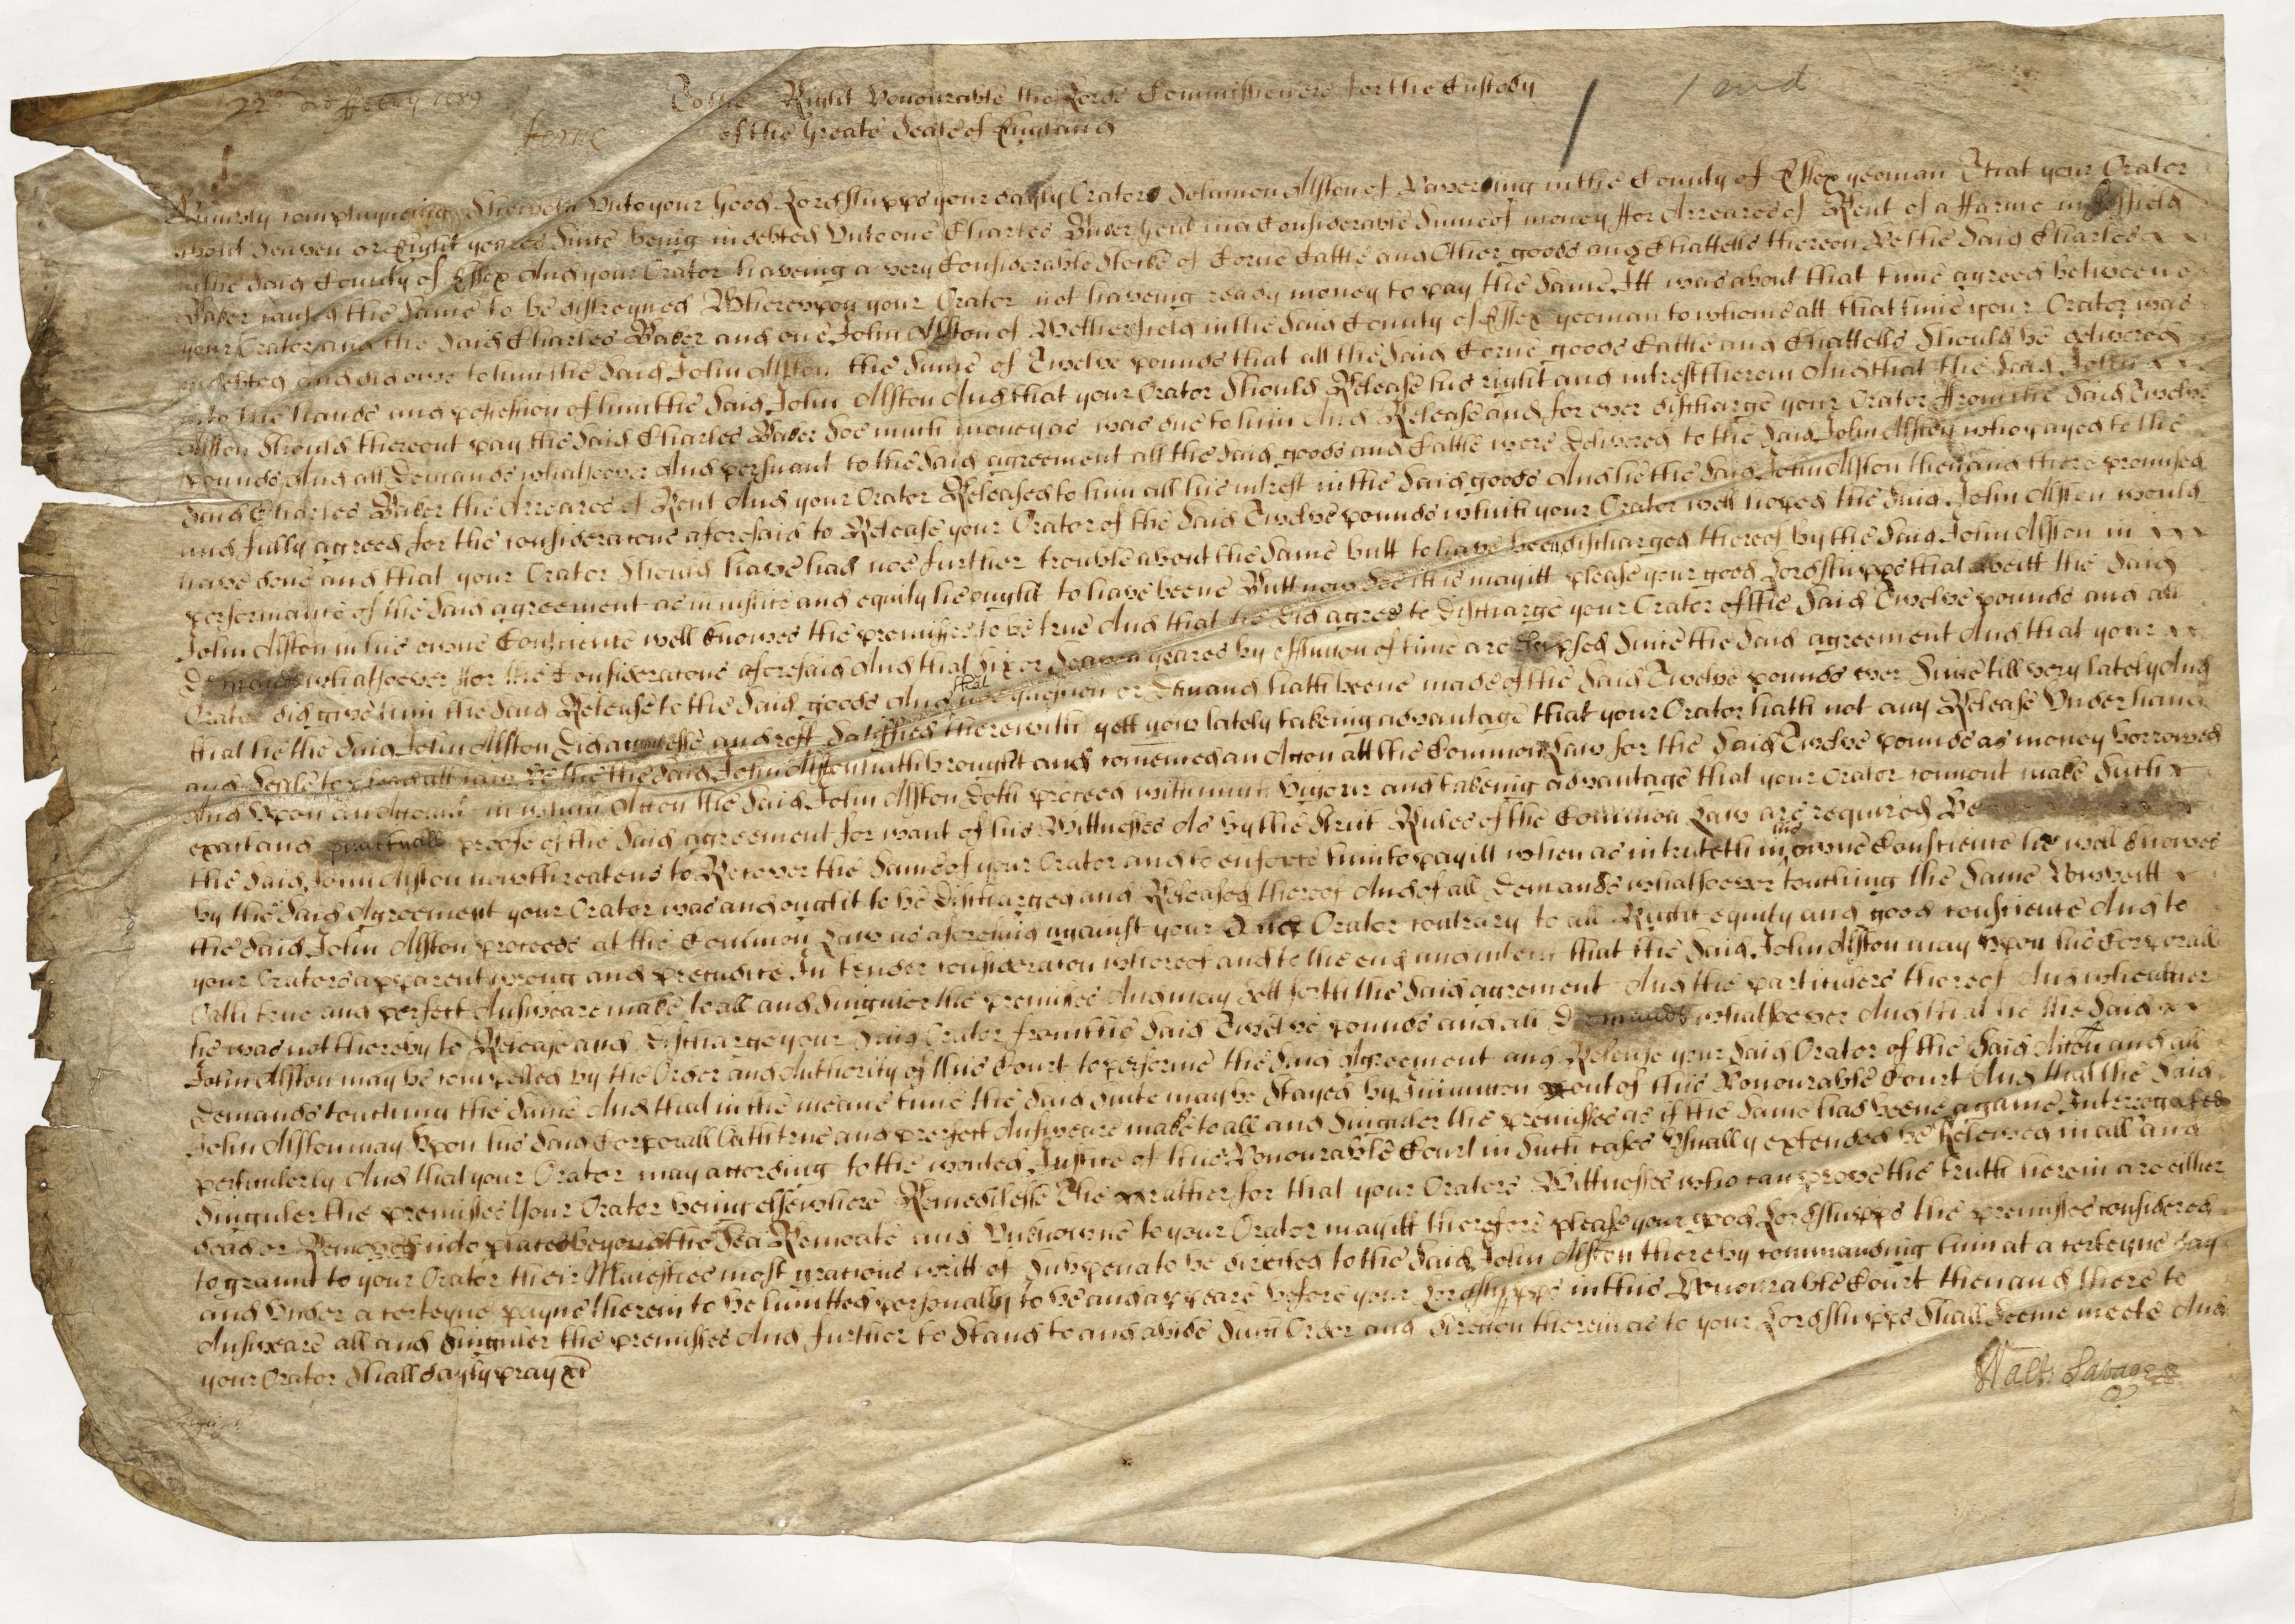 22 die ffebry 1689
To the Right Honourable the Lords Commissioners for the Custody
of the Greate Seale of England
Humbly complayneing Sheweth Unto your good Lordshipps your dayly Orator Solomon Alston of in the County of Essex yeoman That your Orator
about Seaven or Eight yeares Since being indebted Unto one Charles Baker Gent in a Considerable Sume of money ffor Arreares of Rent of a ffarme in
in the said County of Essex And your Orator haveing a very Considerable Stocke of Corne Cattle and Other goods and Chattells thereon Hee the Said Charles
Baker caused the Same to be distreyned Whereupon your Orator not haveing ready money to pay the Same, Itt was about that time agreed betweene
your Orator and the Said Charles Baker and one John Alston of Wethersfield in the Said County of Essex yeoman to whome att that time your Orator was
indebted and did owe to him the Said John Alston the Sume of Twelve pounds that all the Said Corne goods Cattle and Chattells Should be delivered
into the hands and possession of him the Said John Alston And that your Orator Should Release his right and intrest therein And that the Said John
Alston Should thereout pay the Said Charles Baker Soe much money as was due to him And Release and for ever discharge your Orator ffrom the Said Twelve
pounds And all Demands whatsoever And persuant to the Said agreement all the Said goods and Cattle were Delivered to the Said John Alston who payed to the
Said Charles Baker the Arreares of Rent And your Orator Released to him all his intrest in the Said goods And he the Said John Alston then and there promised
and fully agreed for the consideracons aforesaid to Release your Orator of the Said Twelve pounds which your Orator well hoped the Said John Alston would
have done and that your Orator Should have had noe further trouble about the Same butt to have been discharged thereof by the Said John Alston in
performance of the Said agreement as in iustice and equity he ought to have beene Butt now Soe itt is may itt please your good Lordshipps that albeitt the Said
John Alston in his owne Conscience well knowes the premisses to be true And that he did agree to Discharge your Orator of the Said Twelve pounds and all
Demands whatsoever ffor the Consideracons aforesaid And that Six or Seaven yeares by effluxion of time are Elapsed Since the Said agreement And that your
Orator did give him the Said Release to the Said goods And that noe question or Demand hath beene made of the Said Twelve pounds ever Since till very lately And
that he the Said John Alston Did acquiesse and rest Satisffied therewith yett now lately takeing advantage that your Orator hath not any Release Under hand
and Seale to plead att law he the Said John Alston hath brought and comenced an Accon att the Common Law for the Said Twelve pounds as money borrowed
And Upon an Accompt in which Accon the Said John Alston Doth proceed with much vigour and takeing advantage that your Orator cannot make Such
exact and punctuall proofe of the Said agreement for want of his Wittnesses As by the Strict Rules of the Common Law are required He
the Said John Alston now threatens to Recover the Same of your Orator and to enforce him to pay itt when as in truth in his owne Conscience he well knowes
by the Said Agreement your Orator was and ought to be Discharged and Released thereof And of all Demands whatsoever touching the Same Howbeitt
the Said John Alston proceeds at the Common Law as aforesaid against your Orator contrary to all Right equity and good conscience And to
your Orators apparent wrong and preiudice In tender consideracon whereof and to the end and intent that the Said John Alston may Upon his Corporall
Oath true and perfect Answeare make to all and Singuler the premisses And may Sett forth the Said agreement And the particulers thereof And wheather
he was not thereby to Release and Discharge your Said Orator from the Said Twelve pounds and all Demands whatsoever And that he the Said
John Alston may be compelled by the Order and Authority of this Court to performe the Said Agreement and Release your Said Orator of the Said Accon and all
Demands touching the Same And that in the meane time the Said Suite may be Stayed by Iniunccon out of this Honourable Court And that the Said
John Alston may Upon his Said Corporall Oath true and perfect Answeare make to all and Singuler the premisses as if the Same had beene againe Interrogated
perticulerly And that your Orator may according to the wonted Justice of this Honourable Court in Such cases Usually extended be Releived in all and
Singuler the premisses Your Orator being elsewhere Remedilesse The rather for that your Orators Wittnesses who can prove the truth herein are either
dead or Removed into places beyond the Sea Remoate and Unknowne to your Orator may itt therefore please your good Lordshipps the premisses considered
to graunt to your Orator their Maiesties most gracious writt of Subpena to be directed to the Said John Alston thereby commanding him at a certeyne day
and Under a certeyne payne therein to be limitted personally to be and appeare before your Lordshipps in this Honourable Court then and there to
Answeare all and Singuler the premisses And further to Stand to and abide Such Order and direccon therein as to your Lordshipps Shall Seeme meete And
your Orator Shall dayly pray &c
Walt: Savage